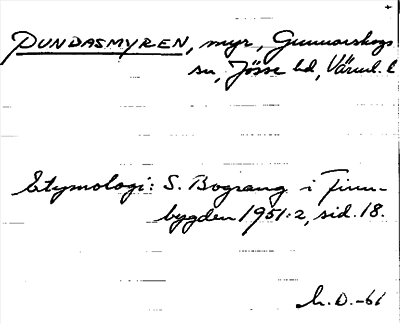 PUNDASMYREN, myr, Gunnarskogs
sn, Jösse hd, Värml. l
Etymologi: S. Bograng i Finn-
bygden 1951:2, sid. 18.
h. D. -61